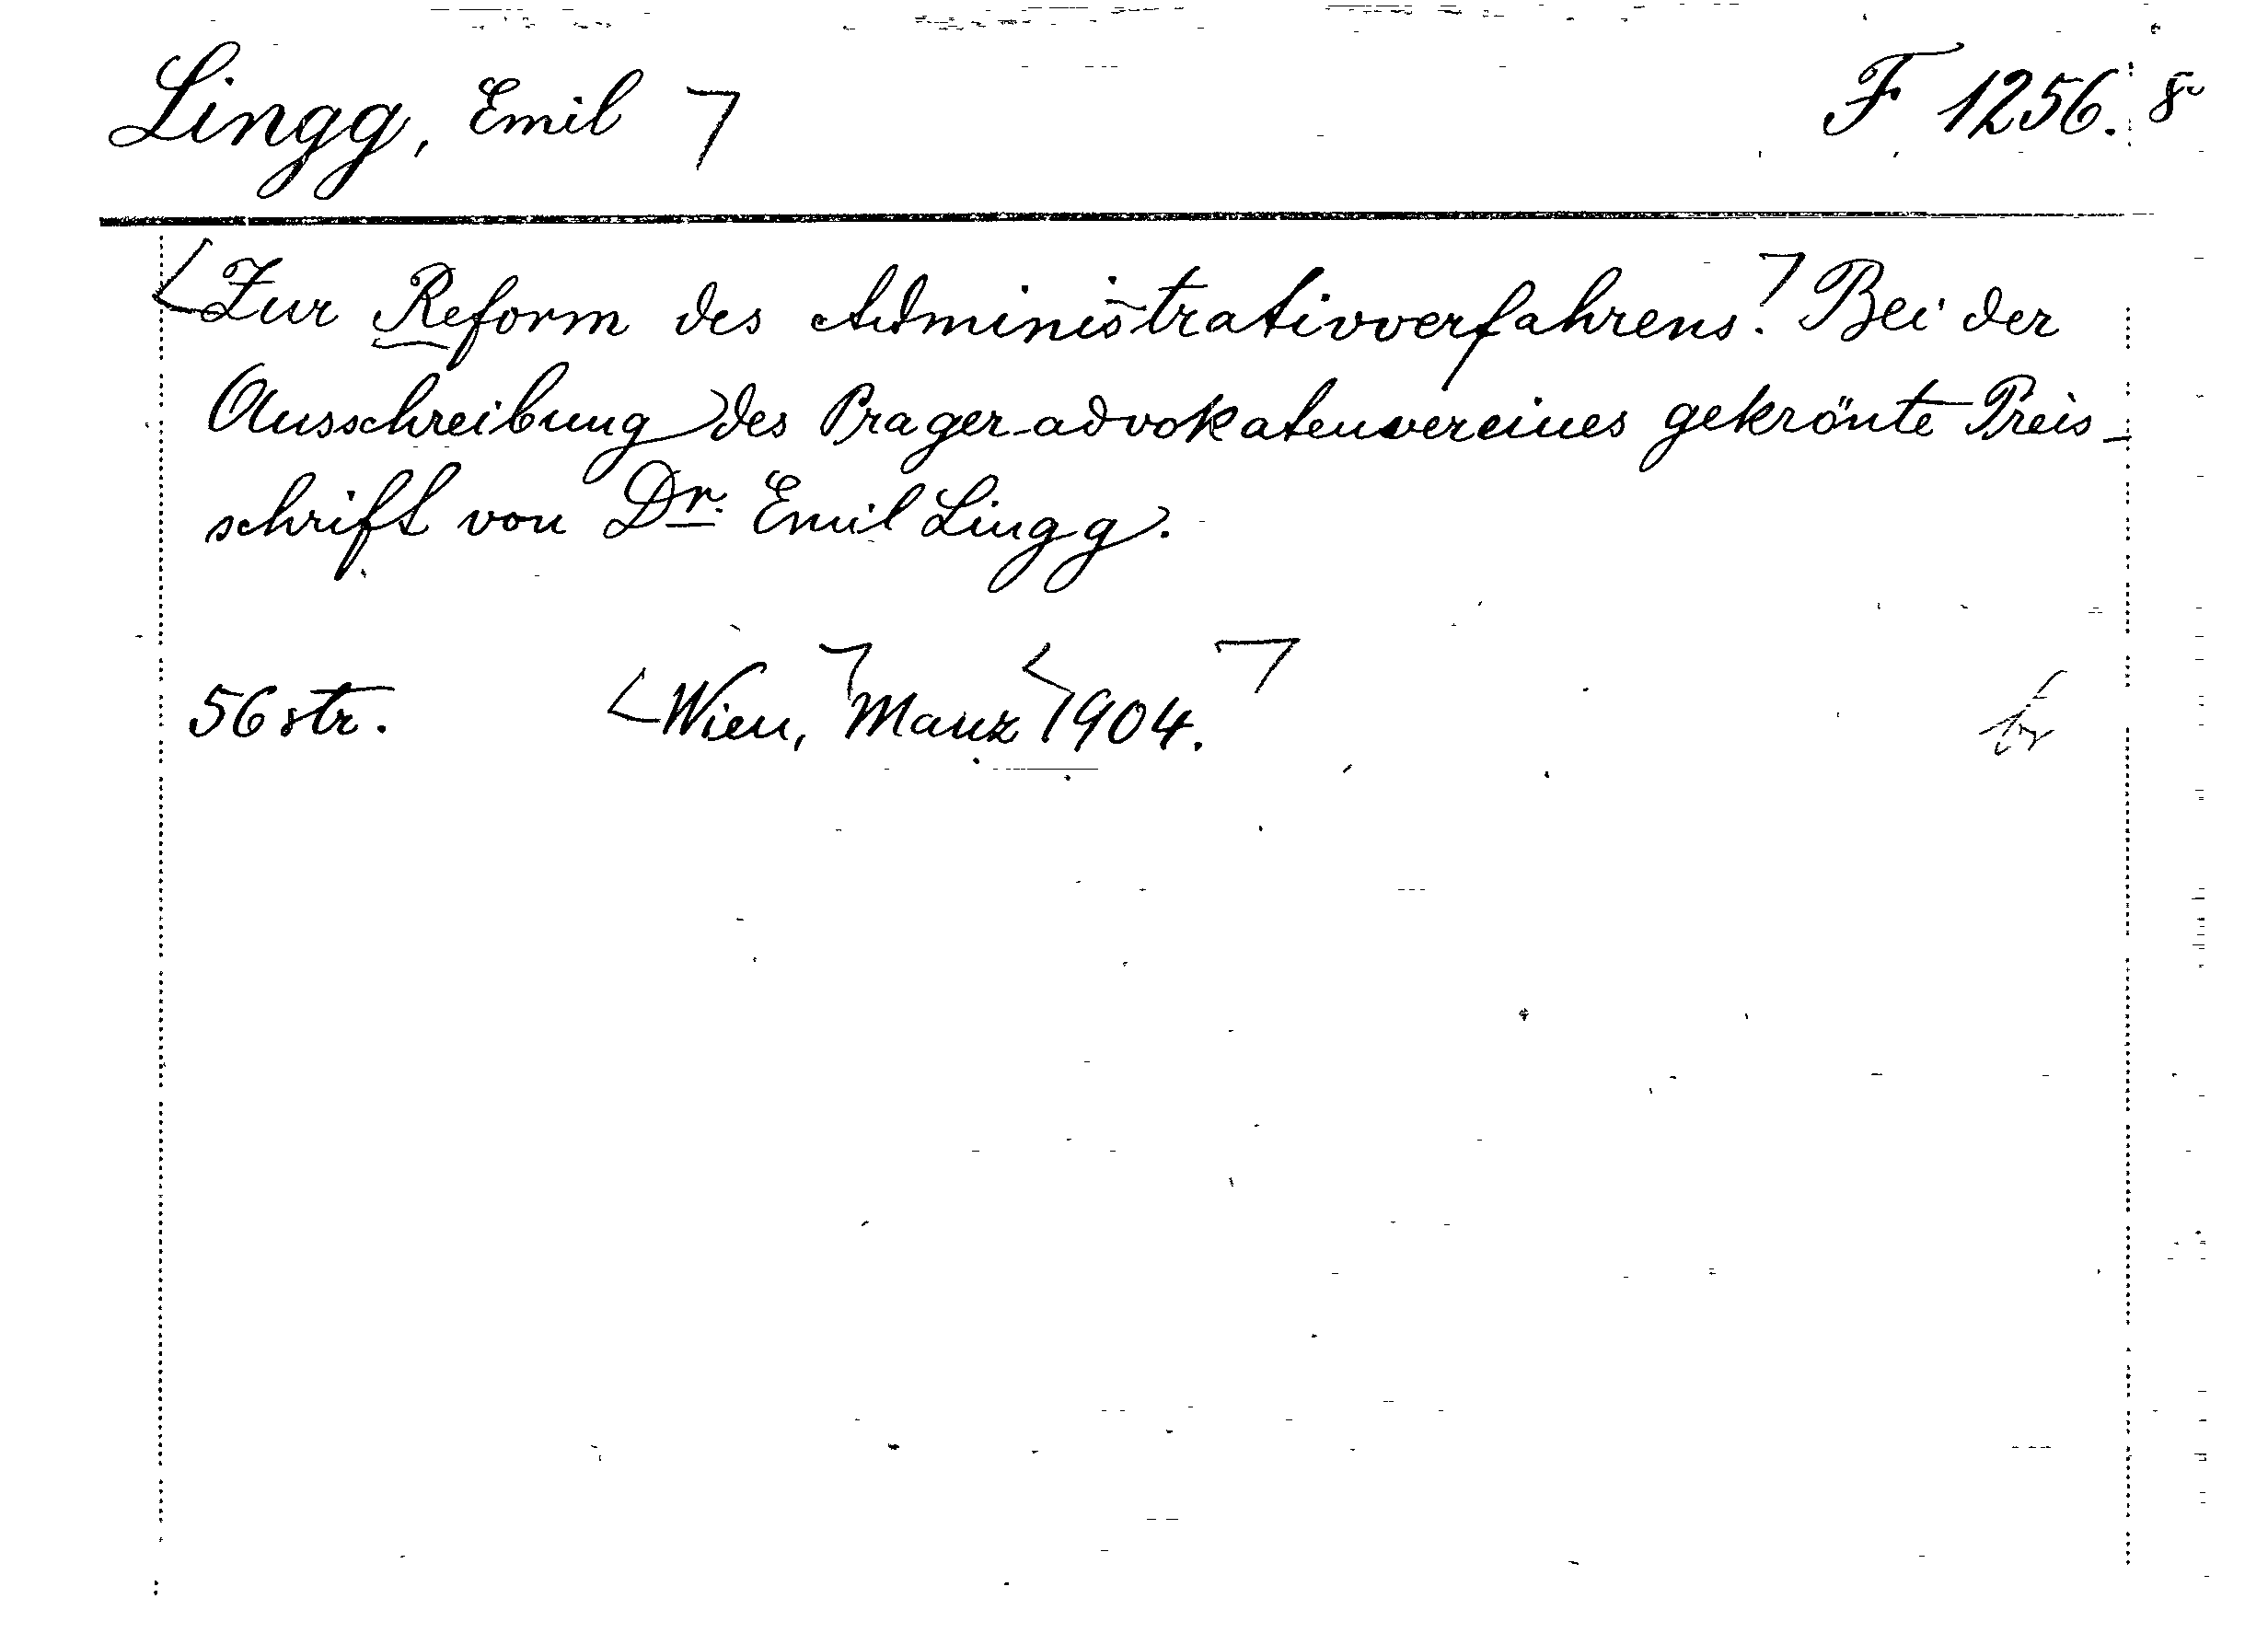 Lingg, Emil F 1256. 8°
Zur Reform des Administrativverfahrens. Bei der
Ausschreibung des Prager advokatenvereines gekrönte Preis-
schrift von Dr. Emil Lingg.
56 str. Wien, Manz 1904.